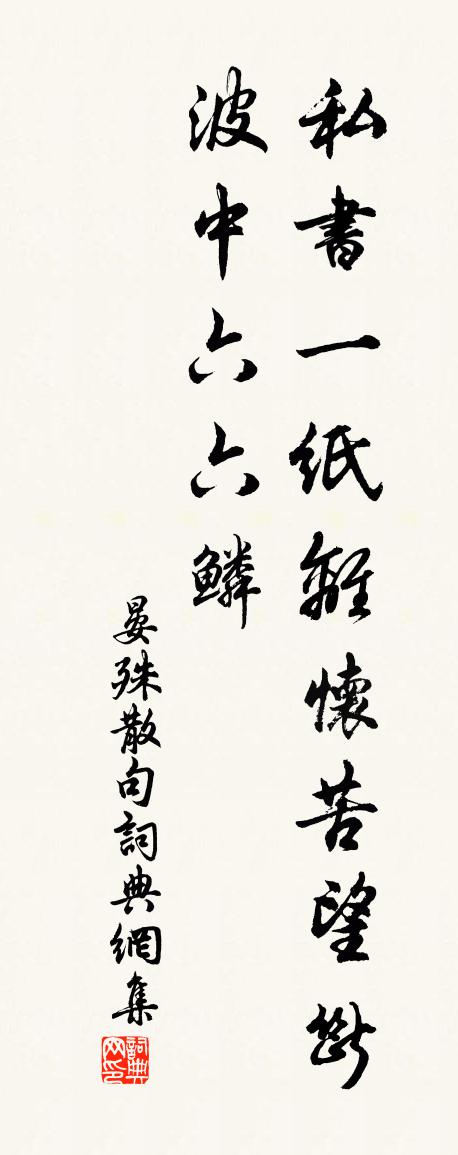 私書一紙離懷苦望斷
波中六六鱗
晏殊散句詞典網集
詞典网印